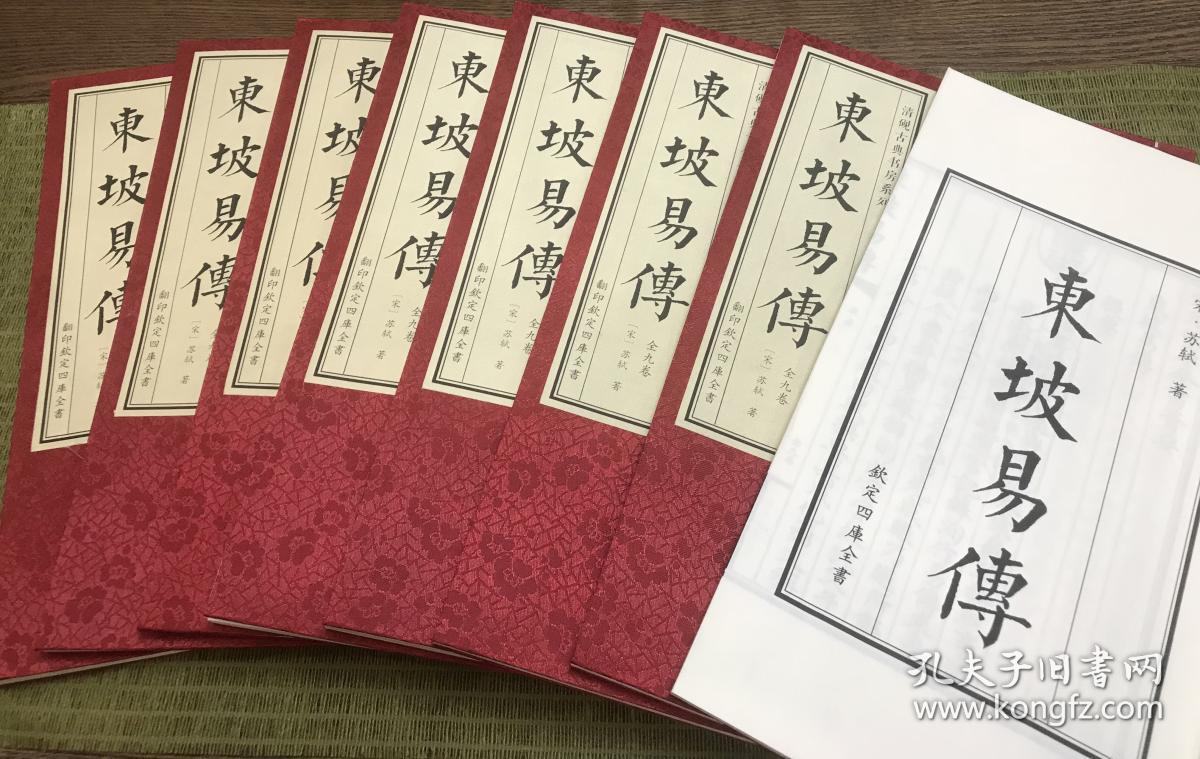 東坡易傳
翻印欽定四庫全書
〔宋〕苏轼
東坡易傳
翻印欽定四庫全書
全九卷
〔宋〕苏轼 著
東坡易傳
翻印欽定四庫全書
東坡易傳
翻印欽定四庫全書
全九卷
〔宋〕苏轼 著
東坡易傳
翻印欽定四庫全書
全九卷
〔宋〕苏轼 著
清砚古
東坡易傳
翻印欽定四庫全書
全九卷
〔宋〕苏轼 著
清砚古典书房系列
東坡易傳
翻印欽定四庫全書
全九卷
〔宋〕苏轼 著
宋 苏轼 著
東坡易傳
欽定四庫全書
孔夫子旧書网
www.kongfz.com